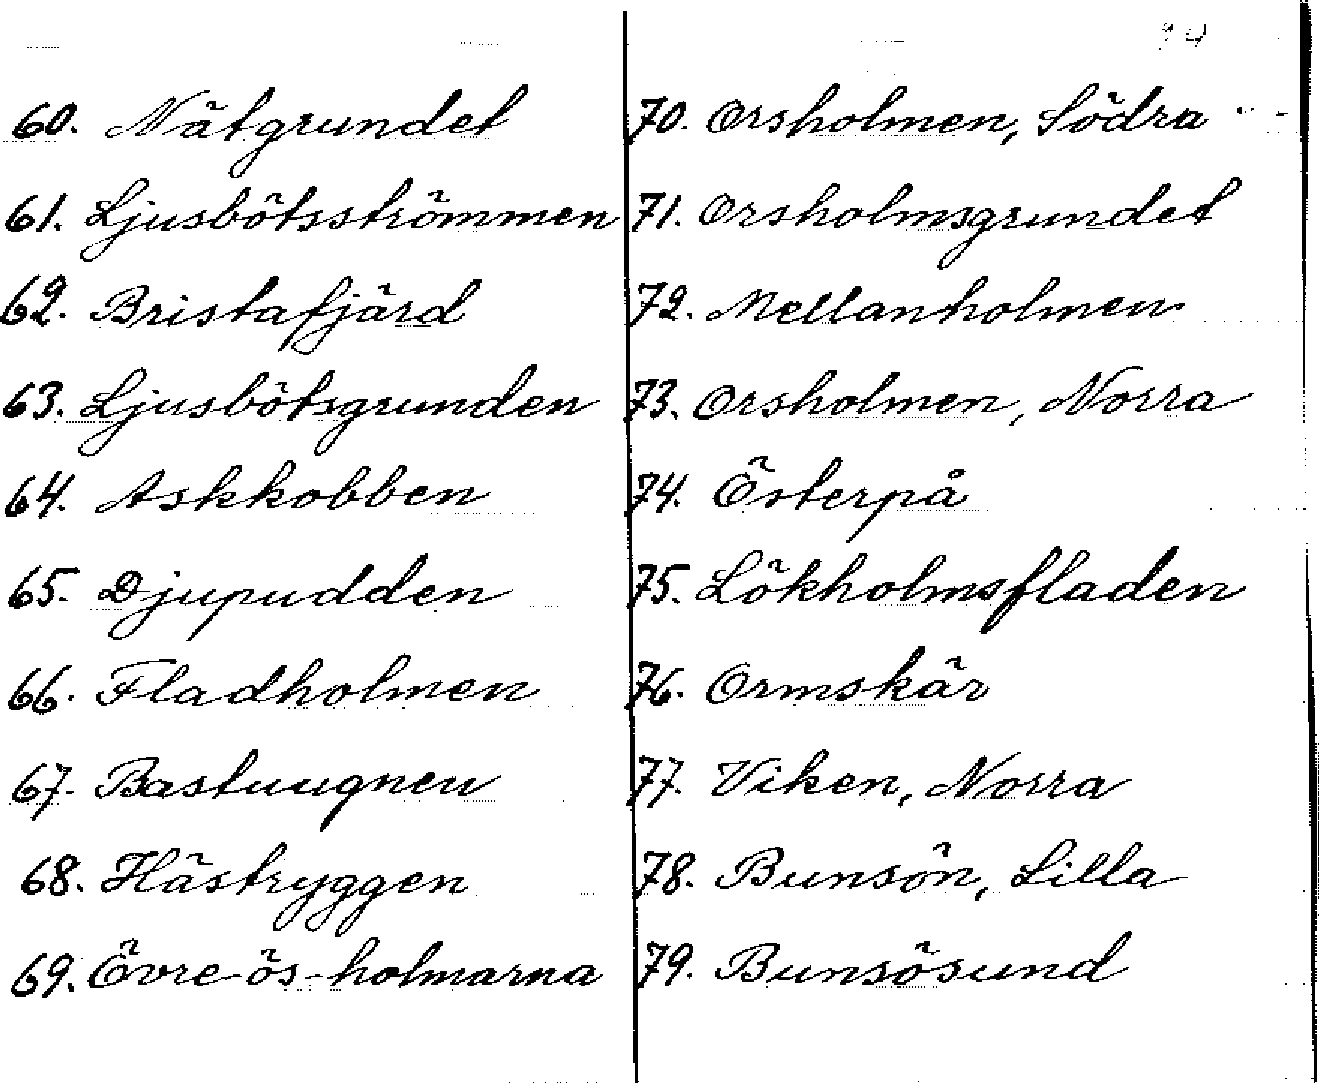 60. Nätgrundet
61. Ljusbötsströmmen
62. Bristafjärd
63. Ljusbötsgrunden
64. Askkobben
65. Djupudden
66. Fladholmen
67. Bastuugnen
68. Hästryggen
69. Övre-ös-holmarna
70. Orsholmen, Södra
71. Orsholmsgrundet
72. Mellanholmen
73. Orsholmen, Norra
74. Österpå
75. Lökholmsfladen
76. Ormskär
77. Viken, Norra
78. Bunsön, Lilla
79. Bunsösund